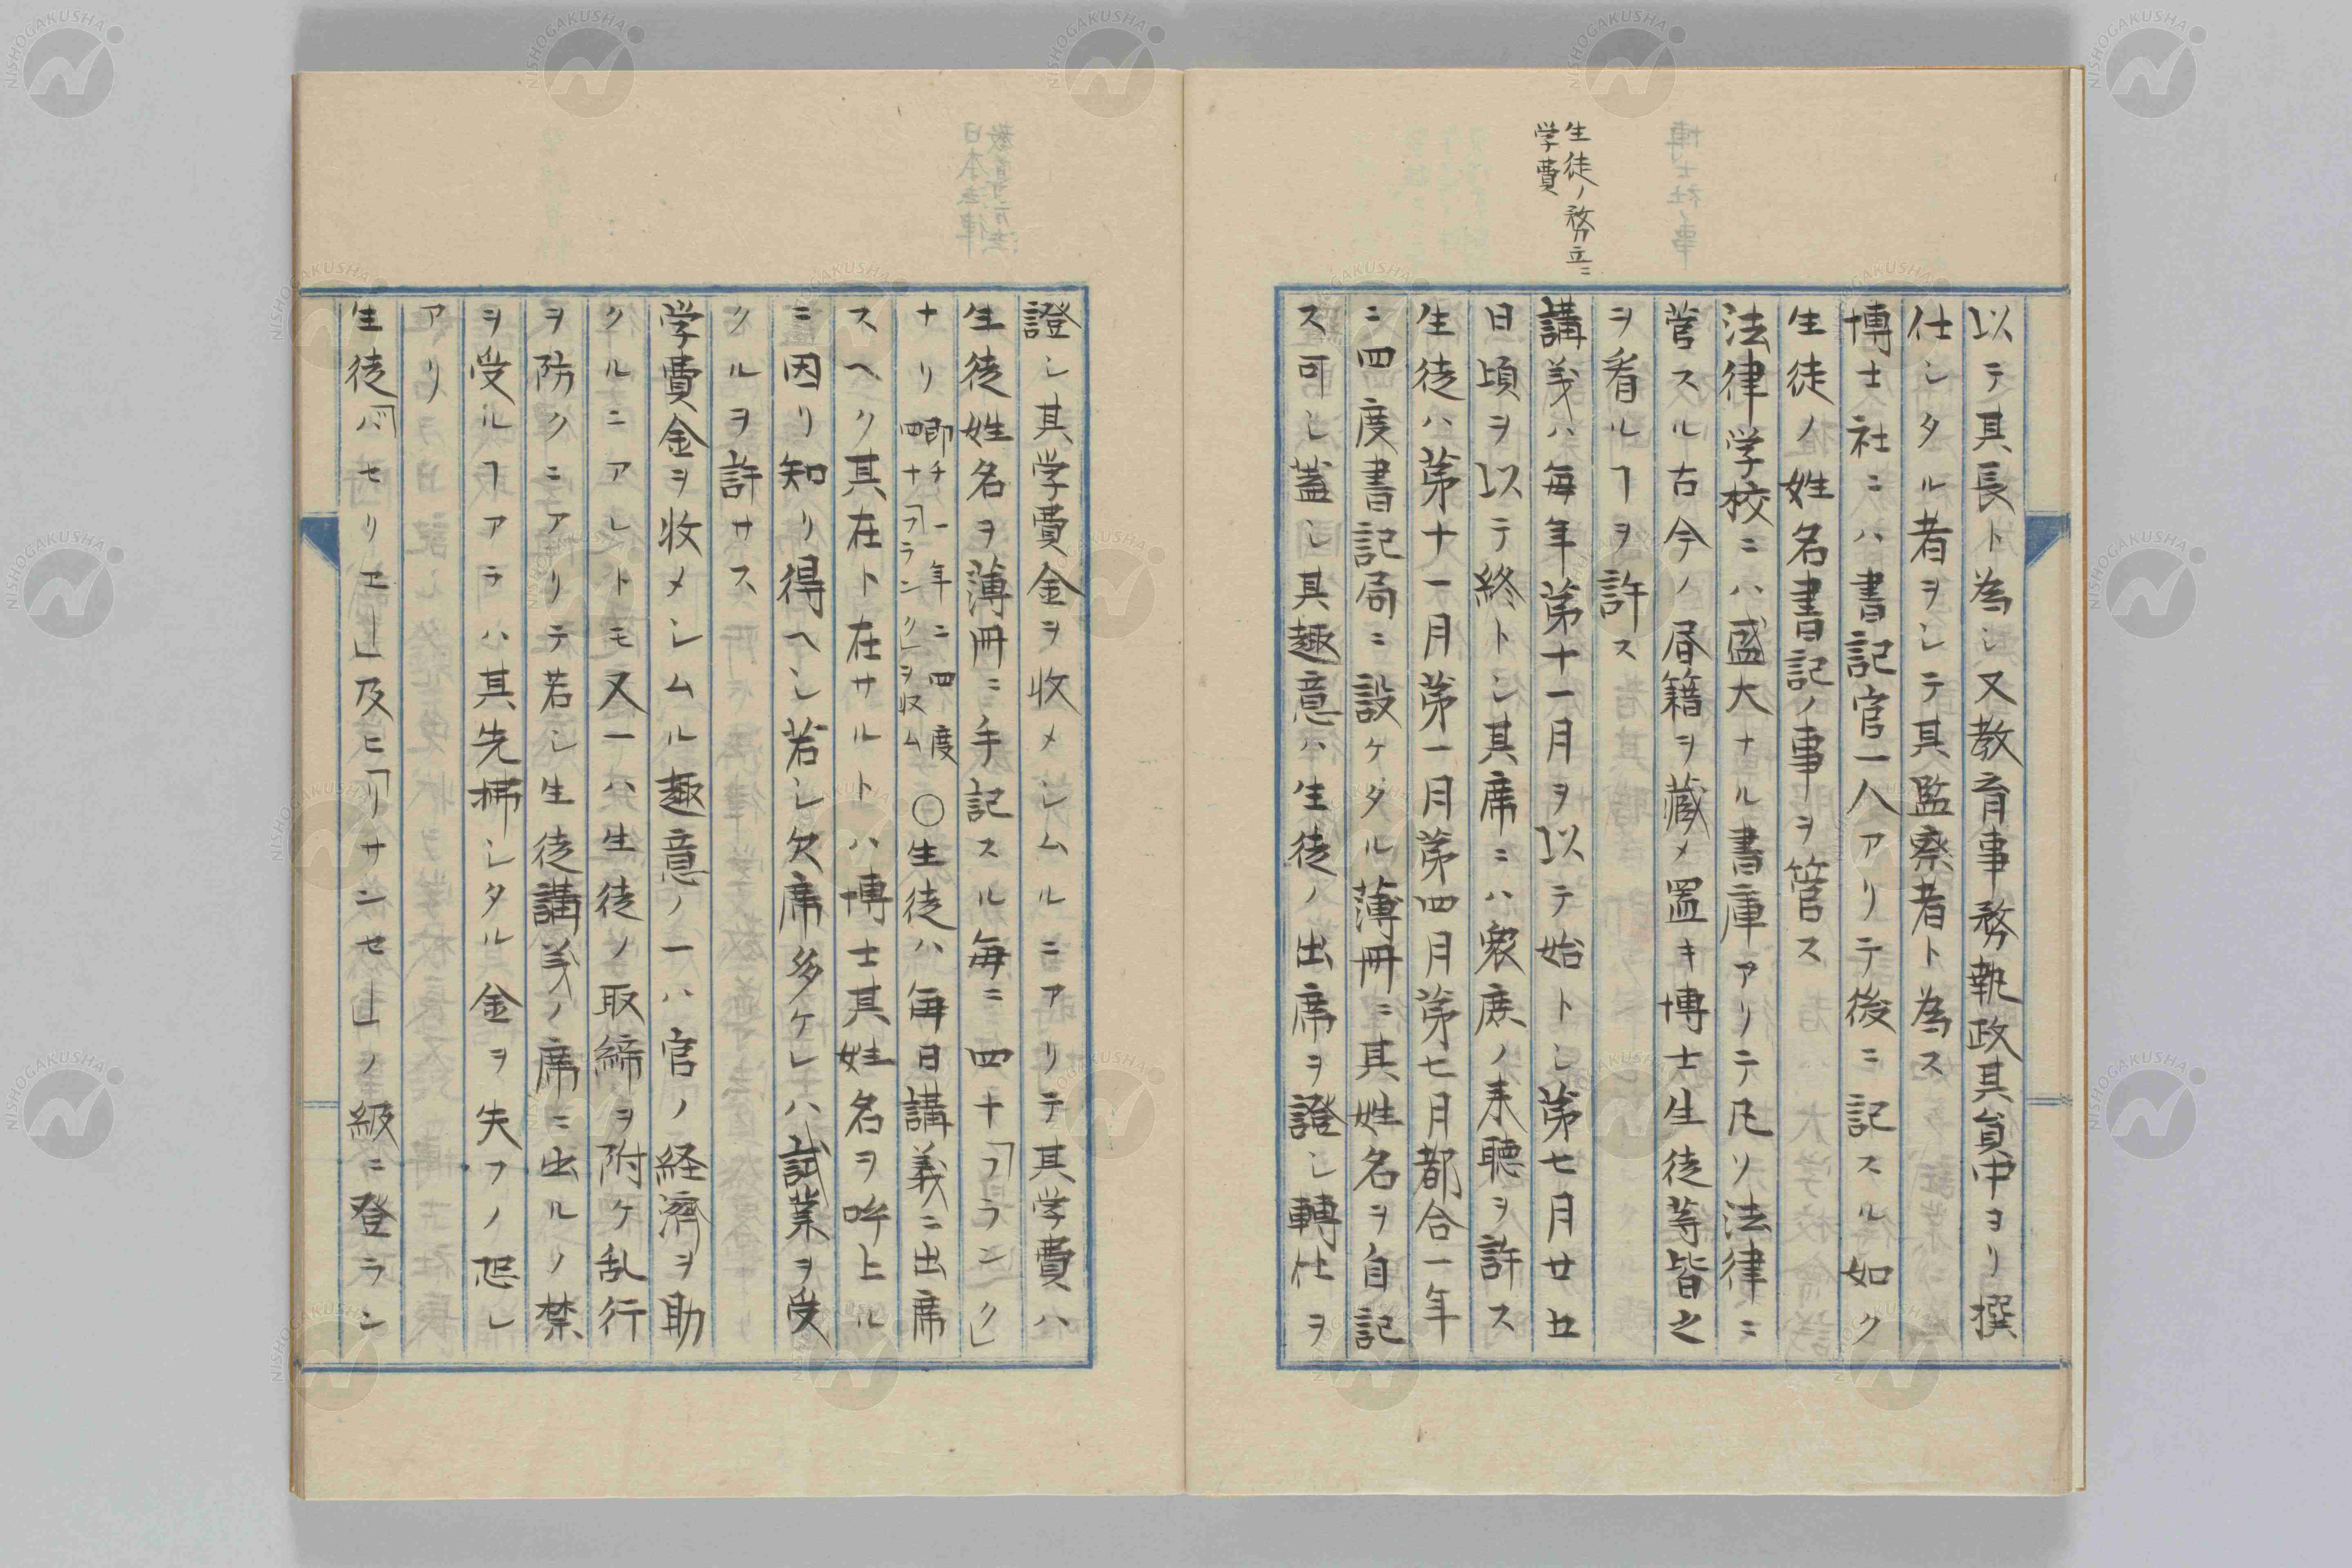 生徒ノ務並ニ
学費
以テ其長ト為シ又教育事務執政其貟中ヨリ撰
仕シタル者ヲシテ其監察者ト為ス
博士社ニハ書記官一人アリテ後ニ記スル如ク
生徒ノ姓名書記ノ事ヲ管ス
法律学校ニハ盛大ナル書庫アリテ凡ソ法律ニ
管スル古今ノ書籍ヲ藏メ置キ博士生徒等皆之
ヲ看ルヿヲ許ス
講義ハ毎年第十一月ヲ以テ始トシ第七月廿五
日頃ヲ以テ終トシ其席ニハ衆庶ノ来聴ヲ許ス
生徒ハ第十一月第一月第四月第七月都合一年
ニ四度書記局ニ設ケタル薄冊ニ其姓名ヲ自記
ス可シ蓋シ其趣意ハ生徒ノ出席ヲ證シ轉仕ヲ
證シ其学費金ヲ收メシムルニアリテ其学費ハ
生徒姓名ヲ薄冊ニ手記スル毎ニ四十「フランク」
ナリ 即チ一年ニ四度
四十「フランク」ヲ収ム
〇生徒ハ毎日講義ニ出席
スヘク其在ト在サルトハ博士其姓名ヲ吟上ル
ニ因リ知リ得ヘシ若シ欠席多ケレハ試業ヲ受
クルヲ許サス
学費金ヲ收メシムル趣意ノ一ハ官ノ経濟ヲ助
クルニアレトモ又一ハ生徒ノ取締ヲ附ケ乱行
ヲ防クニアリテ若シ生徒講義ノ席ニ出ルノ禁
ヲ受ルヿアラハ其先拂シタル金ヲ失フノ恐レ
アリ
生徒「バセリヱ」及ヒ「リサンセ」ノ級ニ登ラン
NISHOGAKUSHA